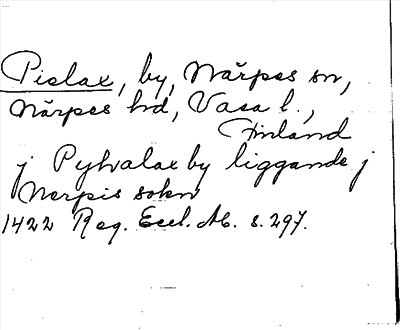 Pielax, by, Närpes sn,
Närpes hd, Vasa l.,
Finland
j Pylvalax by liggande j
Nerpis sokn
1422 Reg. Eccl. Ab. s. 297.